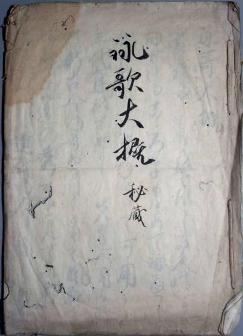 詠歌大概
秘蔵